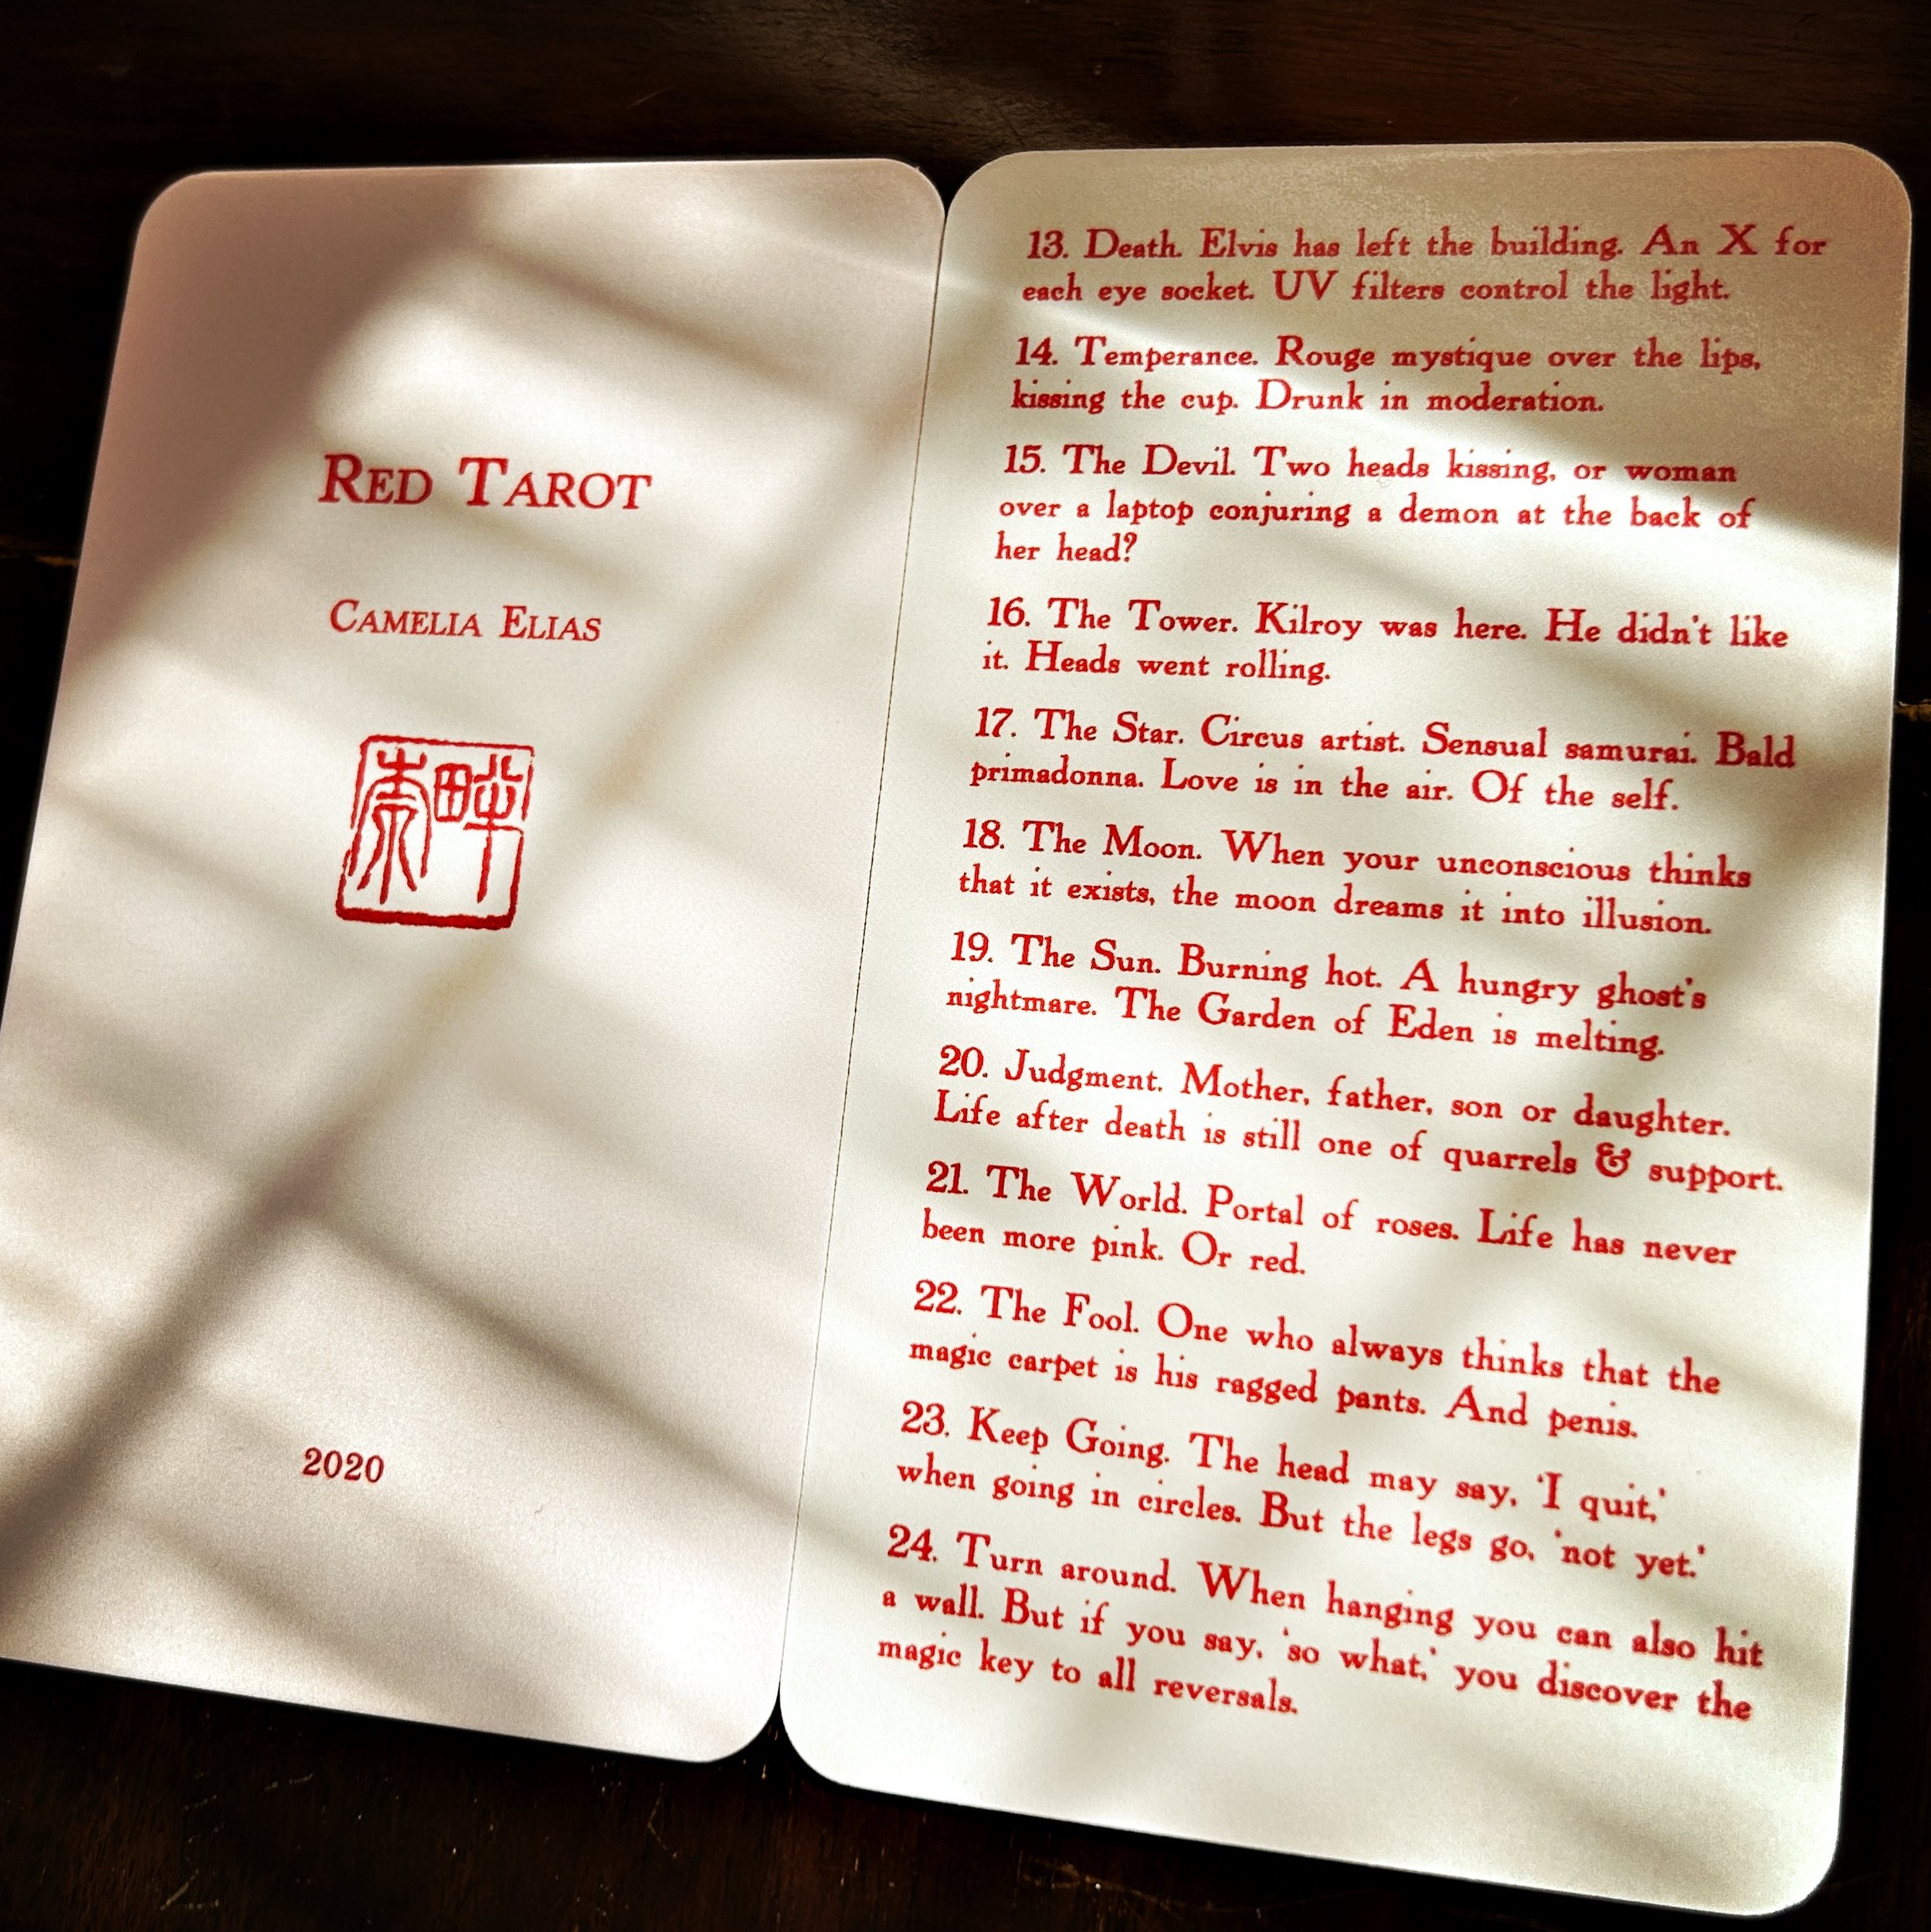 RED TAROT
CAMELIA ELIAS
2020
13. Death. Elvis has left the building. An X for
each eye socket. UV filters control the light.
14. Temperance. Rouge mystique over the lips,
kissing the cup. Drunk in moderation.
15. The Devil. Two heads kissing, or woman
over a laptop conjuring a demon at the back of
her head?
16. The Tower. Kilroy was here. He didn't like
it. Heads went rolling.
17. The Star. Circus artist. Sensual samurai. Bald
primadonna. Love is in the air. Of the self.
18. The Moon. When your unconscious thinks
that it exists, the moon dreams it into illusion.
19. The Sun. Burning hot. A hungry ghost's
nightmare. The Garden of Eden is melting.
20. Judgment. Mother, father, son or daughter.
Life after death is still one of quarrels & support.
21. The World. Portal of roses. Life has never
been more pink. Or red.
22. The Fool. One who always thinks that the
magic carpet is his ragged pants. And penis.
23. Keep Going. The head may say, 'I quit,'
when going in circles. But the legs go, 'not yet.'
24. Turn around. When hanging you can also hit
a wall. But if you say, 'so what,' you discover the
magic key to all reversals.